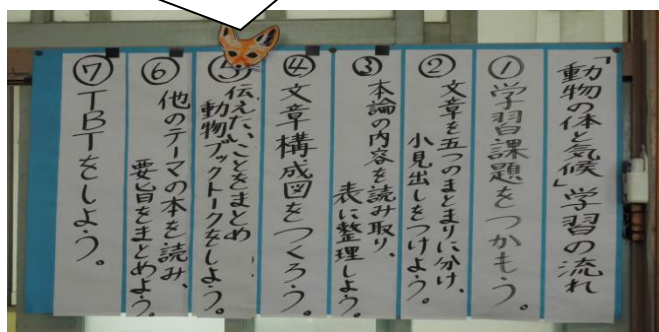 「動物の体と気候」学習の流れ
①学習課題をつかもう。
②文章を五つのまとまりに分け、
小見出しをつけよう。
③本論の内容を読み取り、
表に整理しよう。
④文章構成図をつくろう。
⑤伝えたいことをまとめ
動物ブックトークをしよう。
⑥他のテーマの本を読み、
要旨をまとめよう。
⑦TBTをしよう。